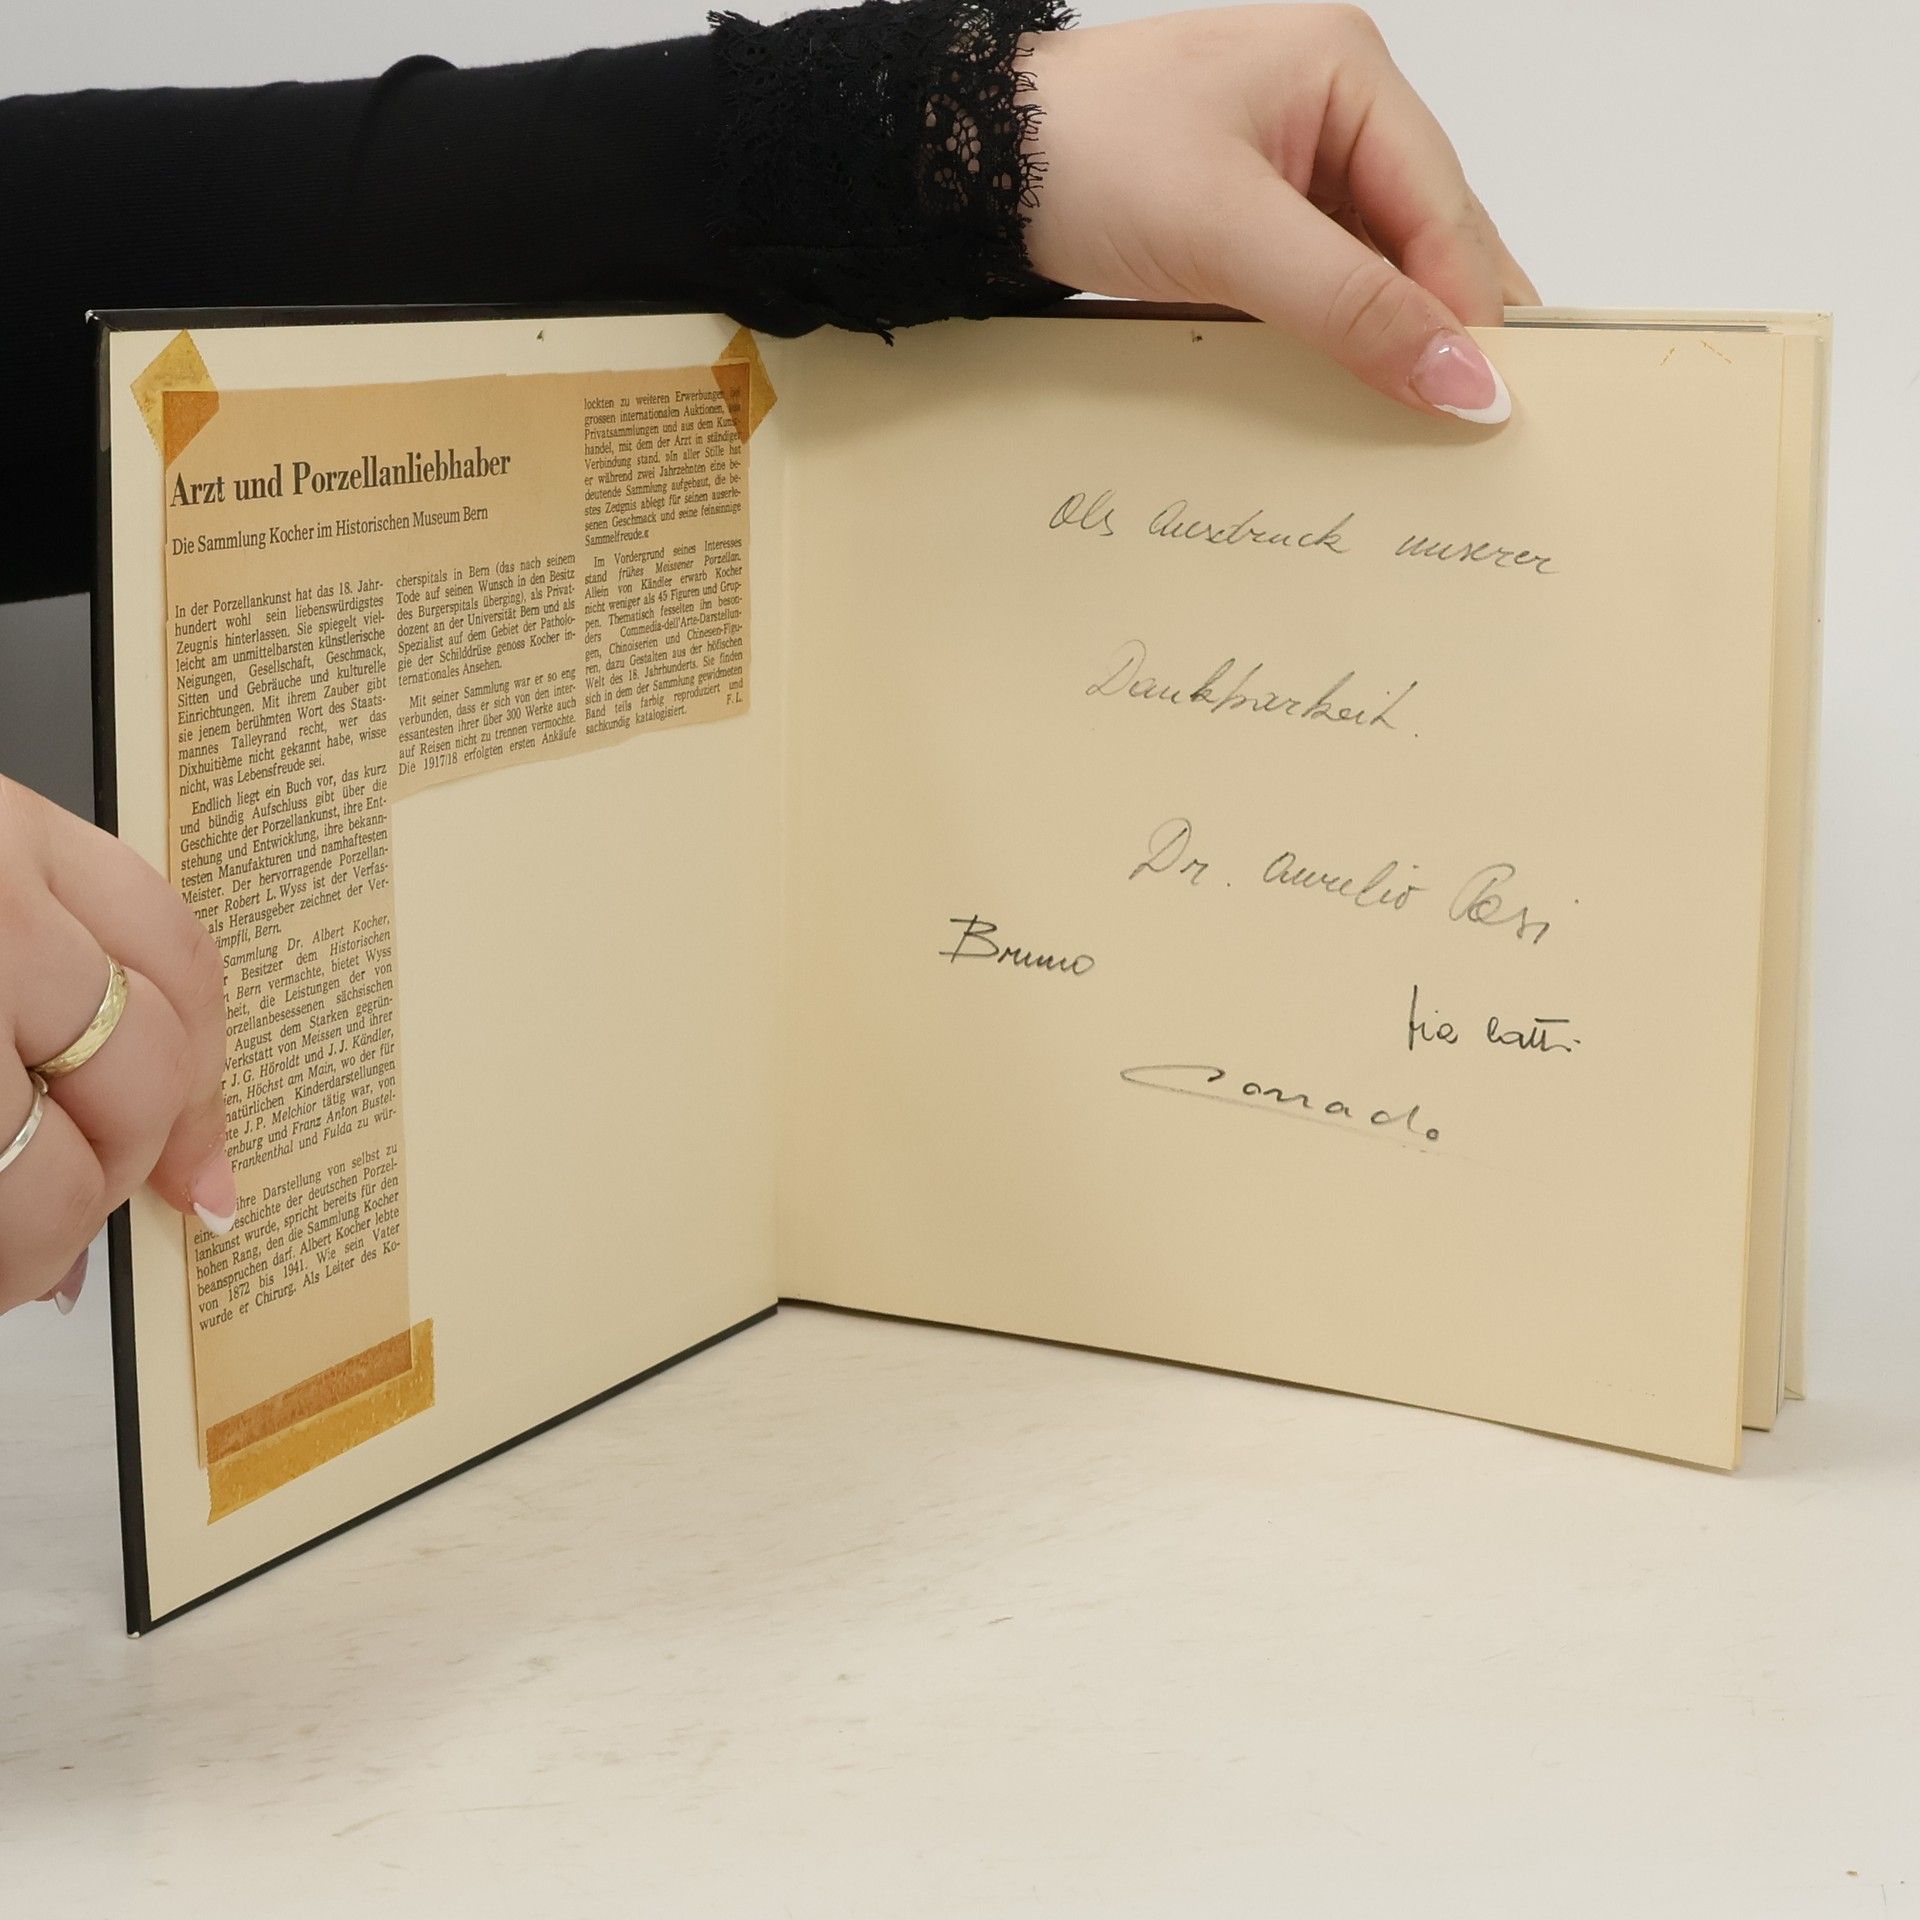 Arzt und Porzellanliebhaber
Die Sammlung Kocher im Historischen Museum Bern
In der Porzellankunst hat das 18. Jahr-
hundert wohl sein liebenswürdigstes
Zeugnis hinterlassen. Sie spiegelt viel-
leicht am unmittelbarsten künstlerische
Neigungen, Gesellschaft, Geschmack,
Sitten und Gebräuche und kulturelle
Einrichtungen. Mit ihrem Zauber gibt
sie jenem berühmten Wort des Staats-
mannes Talleyrand recht, wer das
Dixhuitième nicht gekannt habe, wisse
nicht, was Lebensfreude sei.
Endlich liegt ein Buch vor, das kurz
und bündig Aufschluss gibt über die
Geschichte der Porzellankunst, ihre Ent-
stehung und Entwicklung, ihre bekann-
testen Manufakturen und namhaftesten
Meister. Der hervorragende Porzellan-
nner Robert L. Wyss ist der Verfas-
als Herausgeber zeichnet der Ver-
ämpfli, Bern.
Sammlung Dr. Albert Kocher,
r Besitzer dem Historischen
n Bern vermachte, bietet Wyss
heit, die Leistungen der von
orzellanbesessenen sächsischen
August dem Starken gegrün-
Werkstatt von Meissen und ihrer
r J. G. Höroldt und J. J. Kändler,
ien, Höchst am Main, wo der für
natürlichen Kinderdarstellungen
te J. P. Melchior tätig war, von
enburg und Franz Anton Bustel-
Frankenthal und Fulda zu wür-
ihre Darstellung von selbst zu
eine eschichte der deutschen Porzel-
lankunst wurde, spricht bereits für den
hohen Rang, den die Sammlung Kocher
beanspruchen darf. Albert Kocher lebte
von 1872 bis 1941. Wie sein Vater
wurde er Chirurg. Als Leiter des Ko-
cherspitals in Bern (das nach seinem
Tode auf seinen Wunsch in den Besitz
des Burgerspitals überging), als Privat-
dozent an der Universität Bern und als
Spezialist auf dem Gebiet der Patholo-
gie der Schilddrüse genoss Kocher in-
ternationales Ansehen.
Mit seiner Sammlung war er so eng
verbunden, dass er sich von den inter-
essantesten ihrer über 300 Werke auch
auf Reisen nicht zu trennen vermochte.
Die 1917/18 erfolgten ersten Ankäufe
lockten zu weiteren Erwerbungen bei
grossen internationalen Auktionen, aus
Privatsammlungen und aus dem Kunst-
handel, mit dem der Arzt in ständiger
Verbindung stand. »In aller Stille hat
er während zwei Jahrzehnten eine be-
deutende Sammlung aufgebaut, die be-
stes Zeugnis ablegt für seinen auserle-
senen Geschmack und seine feinsinnige
Sammelfreude.«
Im Vordergrund seines Interesses
stand frühes Meissener Porzellan.
Allein von Kändler erwarb Kocher
nicht weniger als 45 Figuren und Grup-
pen. Thematisch fesselten ihn beson-
ders Commedia-dell'Arte-Darstellun-
gen, Chinoiserien und Chinesen-Figu-
ren, dazu Gestalten aus der höfischen
Welt des 18. Jahrhunderts. Sie finden
sich in dem der Sammlung gewidmeten
Band teils farbig reproduziert und
sachkundig katalogisiert. F. L.
Als Ausdruck unserer
Dankbarkeit.
Dr. Aurelio
Bruno
Corrado